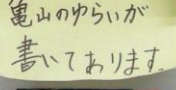 亀山のゆらいが
書いてあります。